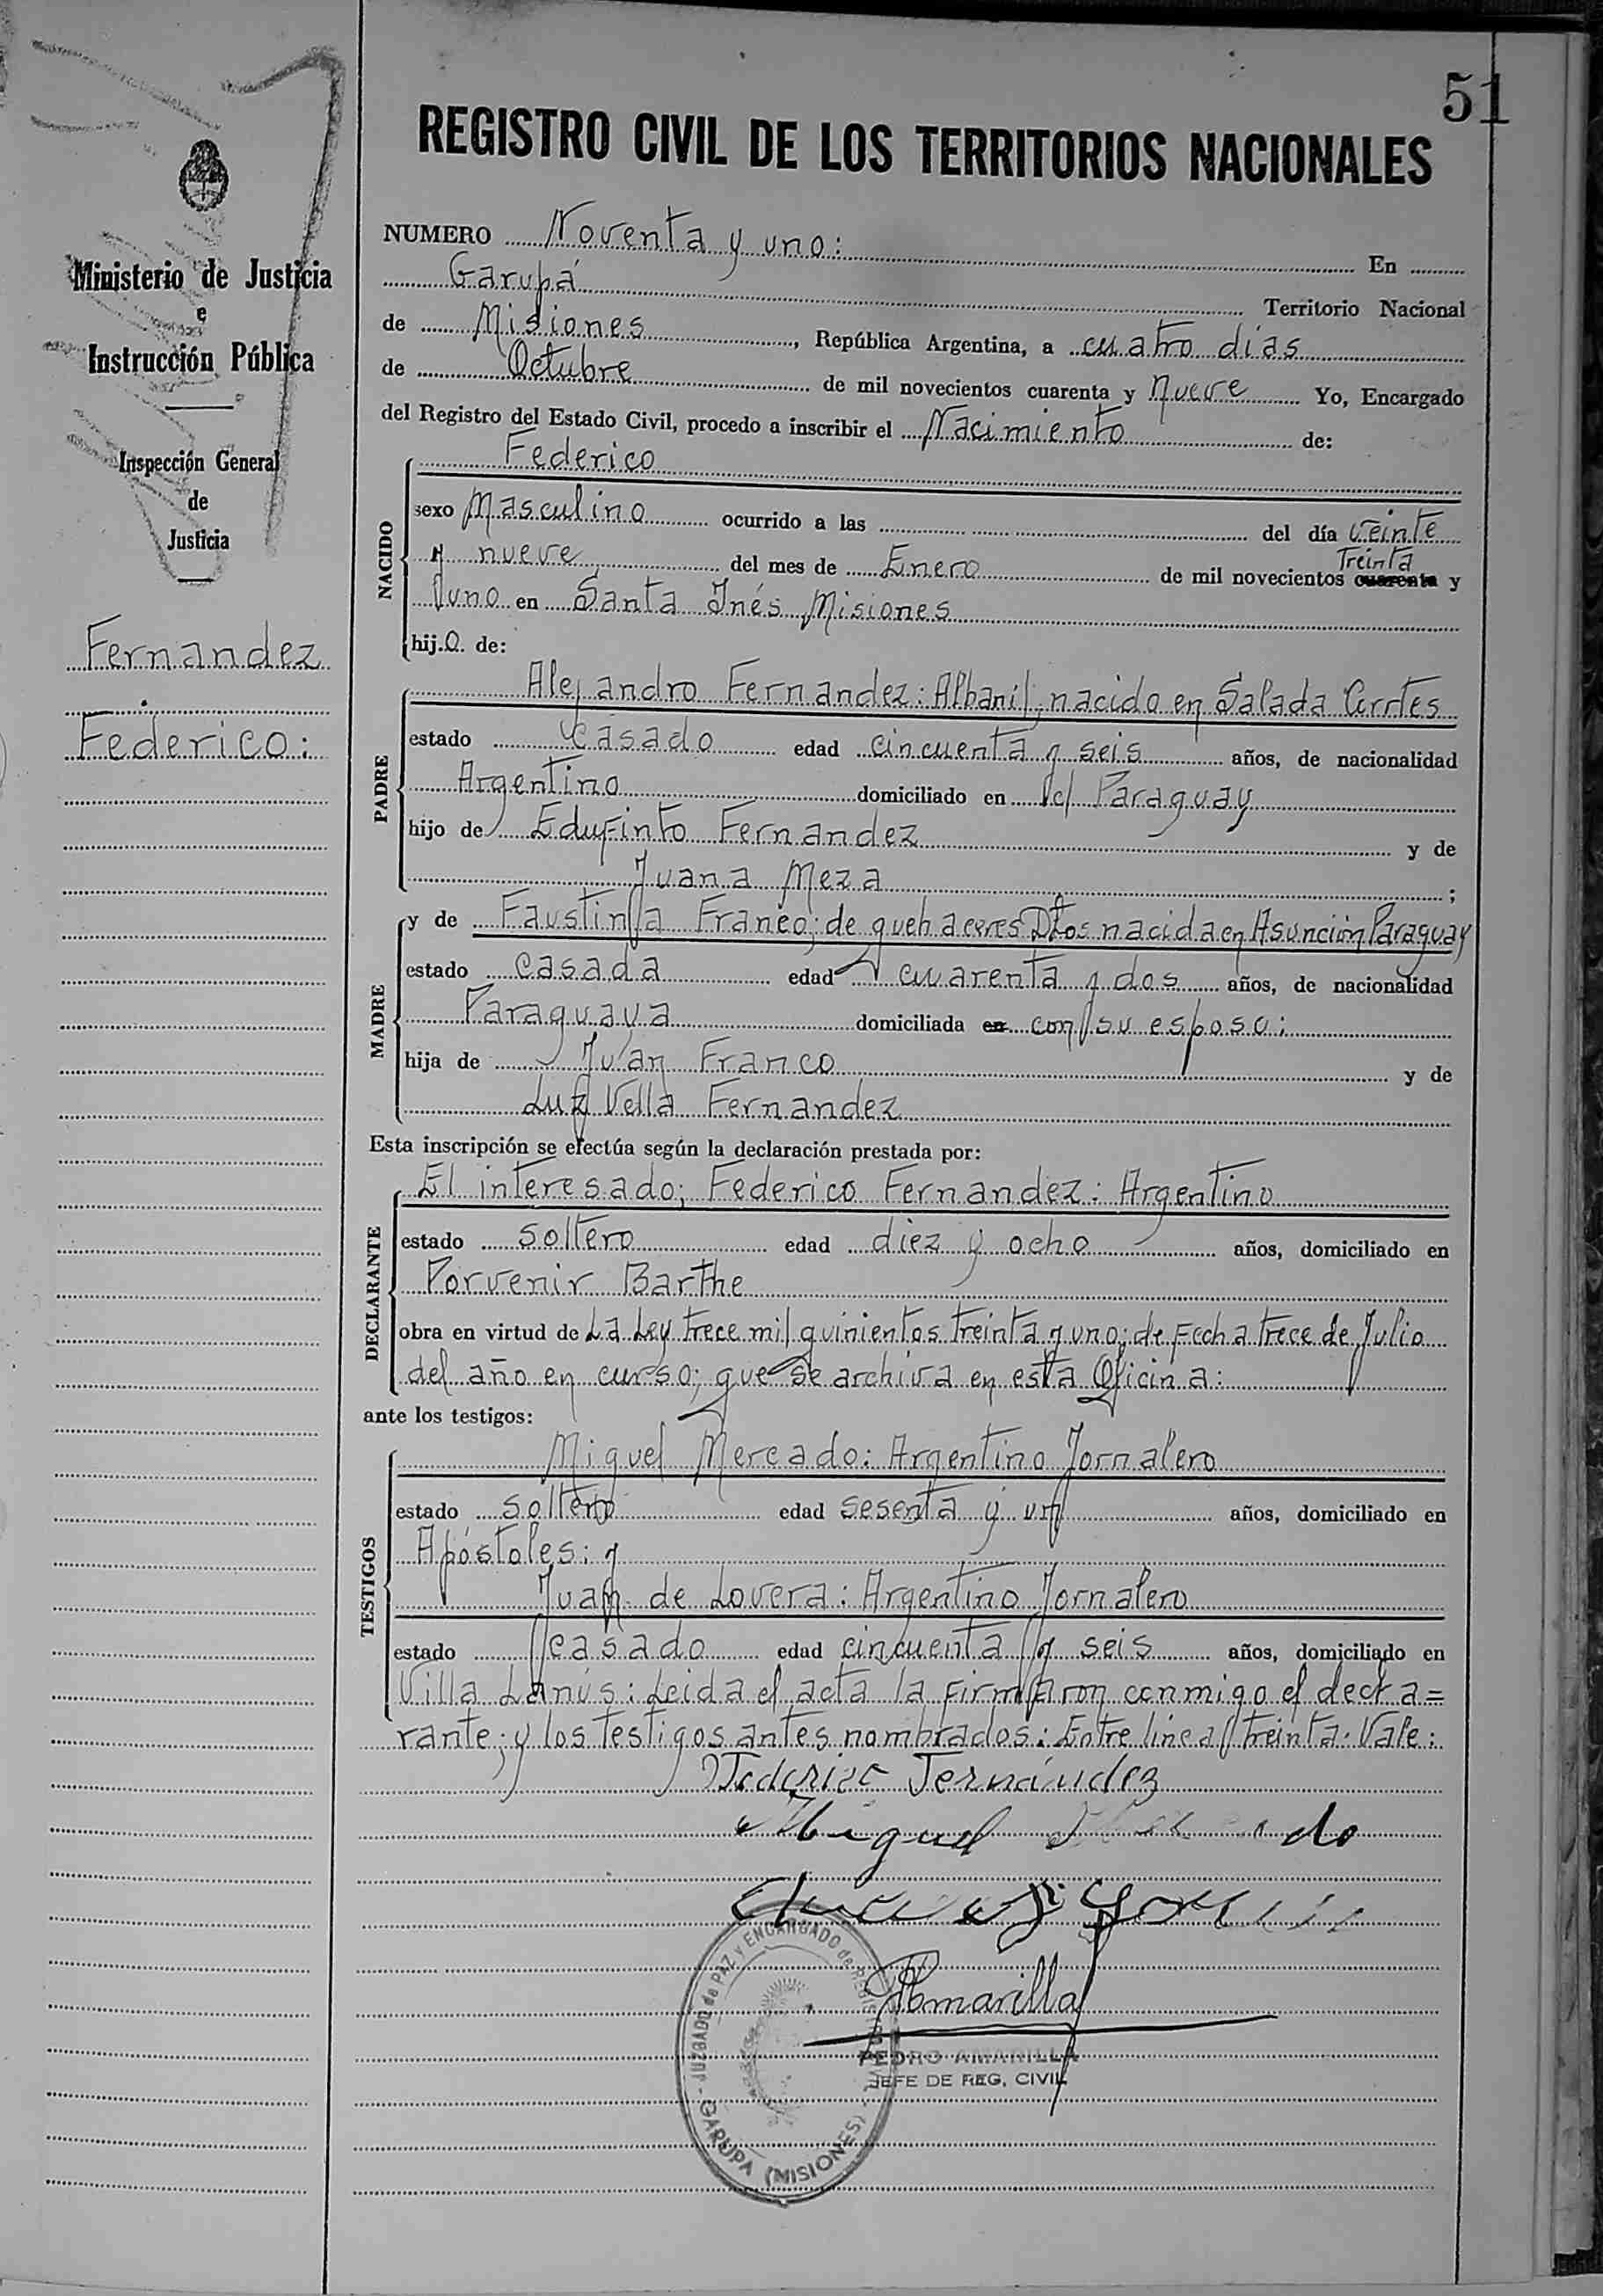 51
REGISTRO CIVIL DE LOS TERRITORIOS NACIONALES
Ministerio de Justicia
e
Instrucción Pública
Inspección General
de
Justicia
Fernandez
Federico:
NUMERO Noventa y uno: En
Garupá Territorio Nacional
de Misiones, República Argentina, a cuatro días
de Octubre de mil novecientos cuarenta y nueve Yo, Encargado
del Registro del Estado Civil, procedo a inscribir el Nacimiento de:
NACIDO
Federico
sexo Masculino ocurrido a las del día veinte
Treinta
y nueve del mes de Enero de mil novecientos cuarenta y
uno en Santa Inés Misiones
hijo de:
PADRE
Alejandro Fernandez: Albanil; nacido en Salada Corrtes
estado Casado edad cincuenta y seis años, de nacionalidad
Argentino domiciliado en el Paraguay
hijo de Fernandez y de
Juana Meza ;
MADRE
y de Faustina Franco; de quehaceres Dtos nacida en Asunción Paraguay
estado casada edad cuarenta y dos años, de nacionalidad
Paraguaya domiciliada en con su esposo:
hija de Juan Franco y de
Luz Vella Fernandez
Esta inscripción se efectúa según la declaración prestada por:
DECLARANTE
El interesado; Federico Fernandez: Argentino
estado soltero edad diez y ocho años, domiciliado en
Porvenir Barthe
obra en virtud de La Ley trece mil quinientos treinta y uno; de Fecha trece de Julio
del año en curso; que se archiva en esta Oficina:
ante los testigos:
TESTIGOS
Miguel Mercado: Argentino Jornalero
estado soltero edad sesenta y un años, domiciliado en
Apóstoles: y
Juan de Lovera: Argentino Jornalero
estado casado edad cincuenta y seis años, domiciliado en
Villa Lanús: Leida el acta la firmaron conmigo el decla=
rante; y los testigos antes nombrados: Entre lineas treinta. Vale:
Federico Fernández
Miguel
PAmarilla
PEDRO AMARILLA
JEFE DE REG. CIVIL
JUZGADO de PAZ y ENCARGADO de REGISTRO CIVIL
GARUPA (MISIONES)